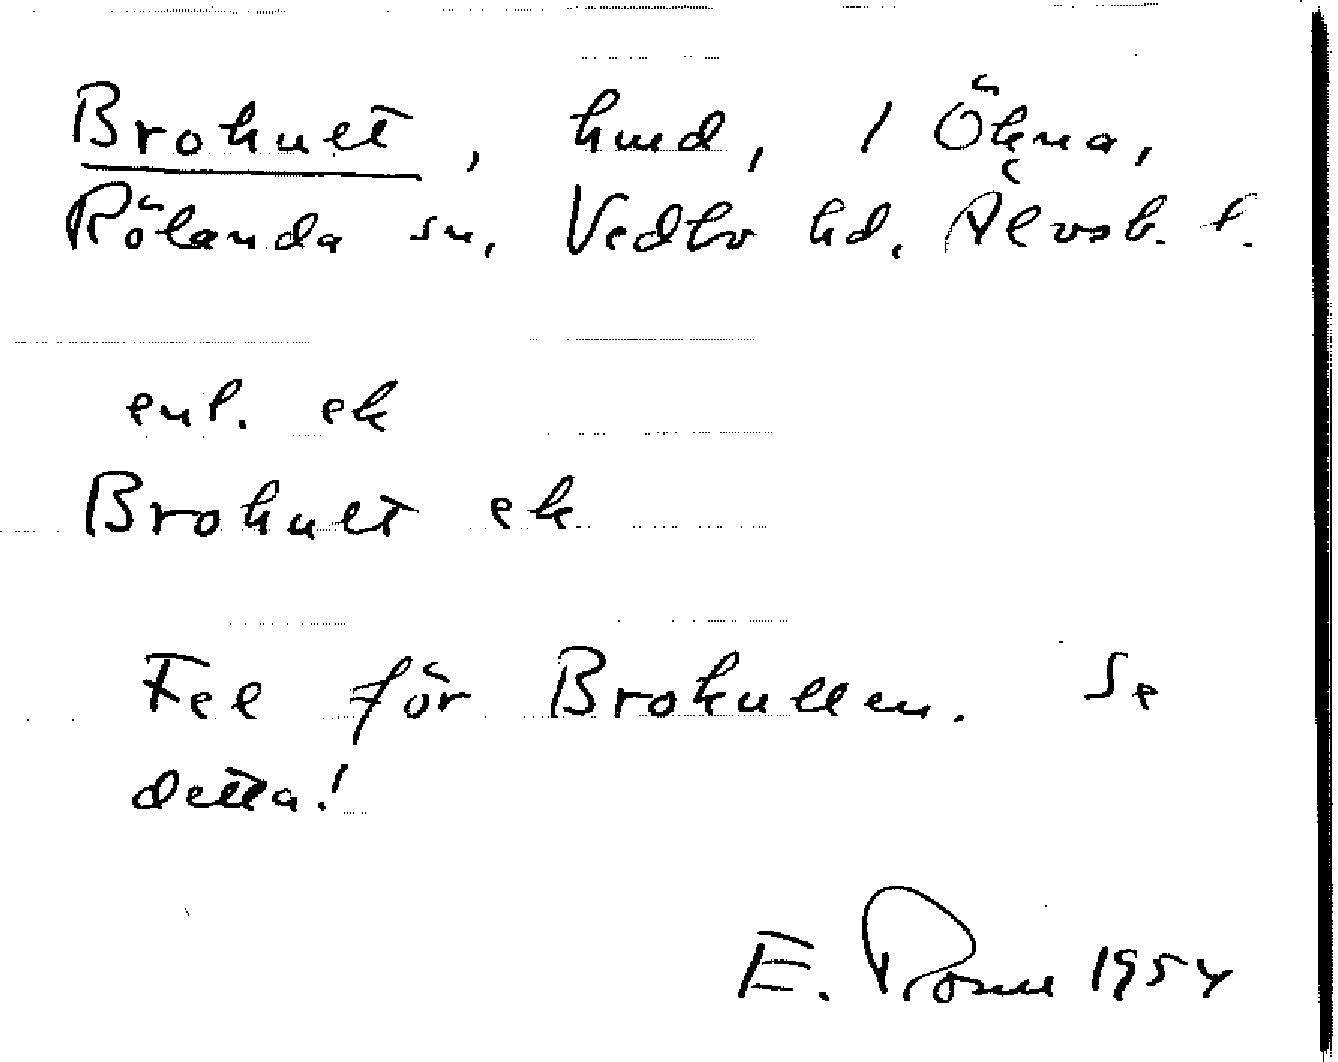 Brohult, hmd, 1 Ökna,
Rölanda sn, Vedbo hd, Älvsb. l.
enl. ek
Brohult ek
Fel för Brokullen. Se
detta!
E. Rosell 1954